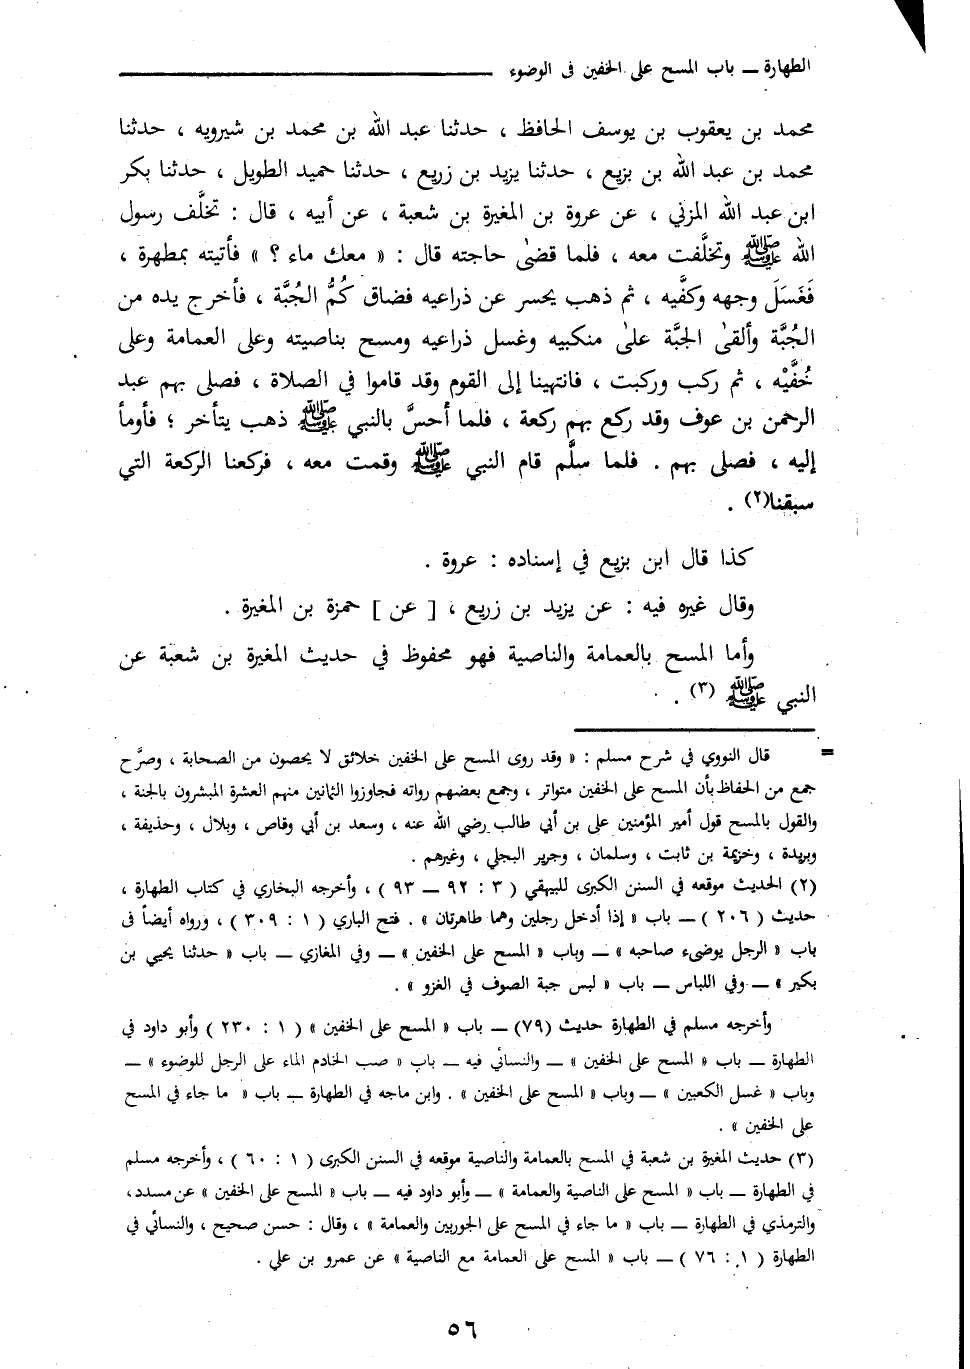 الطهارة ــ باب المسح على الخفين فى الوضوء
محمد بن يعقوب بن يوسف الحافظ ، حدثنا عبد الله بن محمد بن شيرويه ، حدثنا
محمد بن عبد الله بن بزيع ، حدثنا يزيد بن زريع ، حدثنا حميد الطويل ، حدثنا بكر
ابن عبد الله المزني ، عن عروة بن المغيرة بن شعبة ، عن أبيه ، قال : تخلَّف رسول
الله ﷺ وتخلَّفت معه ، فلما قضىٰ حاجته قال : « معك ماء ؟ » فأتيته بمطهرة ،
فَغَسَلَ وجهه وكفَّيه ، ثم ذهب يحسر عن ذراعيه فضاق كُمُّ الجُبَّة ، فأخرج يده من
الجُبَّة وألقىٰ الجبَّة علىٰ منكبيه وغسل ذراعيه ومسح بناصيته وعلى العمامة وعلى
خُفَّيْه ، ثم ركب وركبت ، فانتهينا إلى القوم وقد قاموا في الصلاة ، فصلى بهم عبد
الرحمن بن عوف وقد ركع بهم ركعة ، فلما أحسَّ بالنبي ﷺ ذهب يتأخر ؛ فأومأ
إليه ، فصلى بهم . فلما سلَّم قام النبي ﷺ وقمت معه ، فركعنا الركعة التي
سبقنا(٢) .
كذا قال ابن بزيع في إسناده : عروة .
وقال غيره فيه : عن يزيد بن زريع ، [ عن ] حمزة بن المغيرة .
وأما المسح بالعمامة والناصية فهو محفوظ في حديث المغيرة بن شعبة عن
النبي ﷺ (٣) .
= قال النووي في شرح مسلم : « وقد روى المسح على الخفين خلائق لا يحصون من الصحابة ، وصرَّح
جمع من الحفاظ بأن المسح على الخفين متواتر ، وجمع بعضهم رواته فجاوزوا الثمانين منهم العشرة المبشرون بالجنة ،
والقول بالمسح قول أمير المؤمنين على بن أبي طالب رضي الله عنه ، وسعد بن أبي وقاص ، وبلال ، وحذيفة ،
وبريدة ، وخزيمة بن ثابت ، وسلمان ، وجرير البجلي ، وغيرهم .
(٢) الحديث موقعه في السنن الكبرى للبيهقي ( ٣ : ٩٢ ــ ٩٣ ) ، وأخرجه البخاري في كتاب الطهارة ،
حديث ( ٢٠٦ ) ــ باب « إذا أدخل رجلين وهما طاهرتان » . فتح الباري ( ١ : ٣٠٩ ) ، ورواه أيضاً فى
باب « الرجل يوضىء صاحبه » ــ وباب « المسح على الخفين » ــ وفي المغازي ــ باب « حدثنا يحيي بن
بكير » ــ وفي اللباس ــ باب « لبس جبة الصوف في الغزو » .
وأخرجه مسلم في الطهارة حديث (٧٩) ــ باب « المسح على الخفين » ( ١ : ٢٣٠ ) وأبو داود في
الطهارة ــ باب « المسح على الخفين » ــ والنسائي فيه ــ باب « صب الخادم الماء على الرجل للوضوء » ــ
وباب « غسل الكعبين » ــ وباب « المسح على الخفين » . وابن ماجه في الطهارة ــ باب « ما جاء في المسح
على الخفين » .
(٣) حديث المغيرة بن شعبة في المسح بالعمامة والناصية موقعه في السنن الكبرى ( ١ : ٦٠ ) ، وأخرجه مسلم
في الطهارة ــ باب « المسح على الناصية والعمامة » ــ وأبو داود فيه ــ باب « المسح على الخفين » عن مسدد،
والترمذي في الطهارة ــ باب « ما جاء في المسح على الجوربين والعمامة » ، وقال : حسن صحيح ، والنسائي في
الطهارة ( ١ : ٧٦ ) ــ باب « المسح على العمامة مع الناصية » عن عمرو بن علي .
٥٦